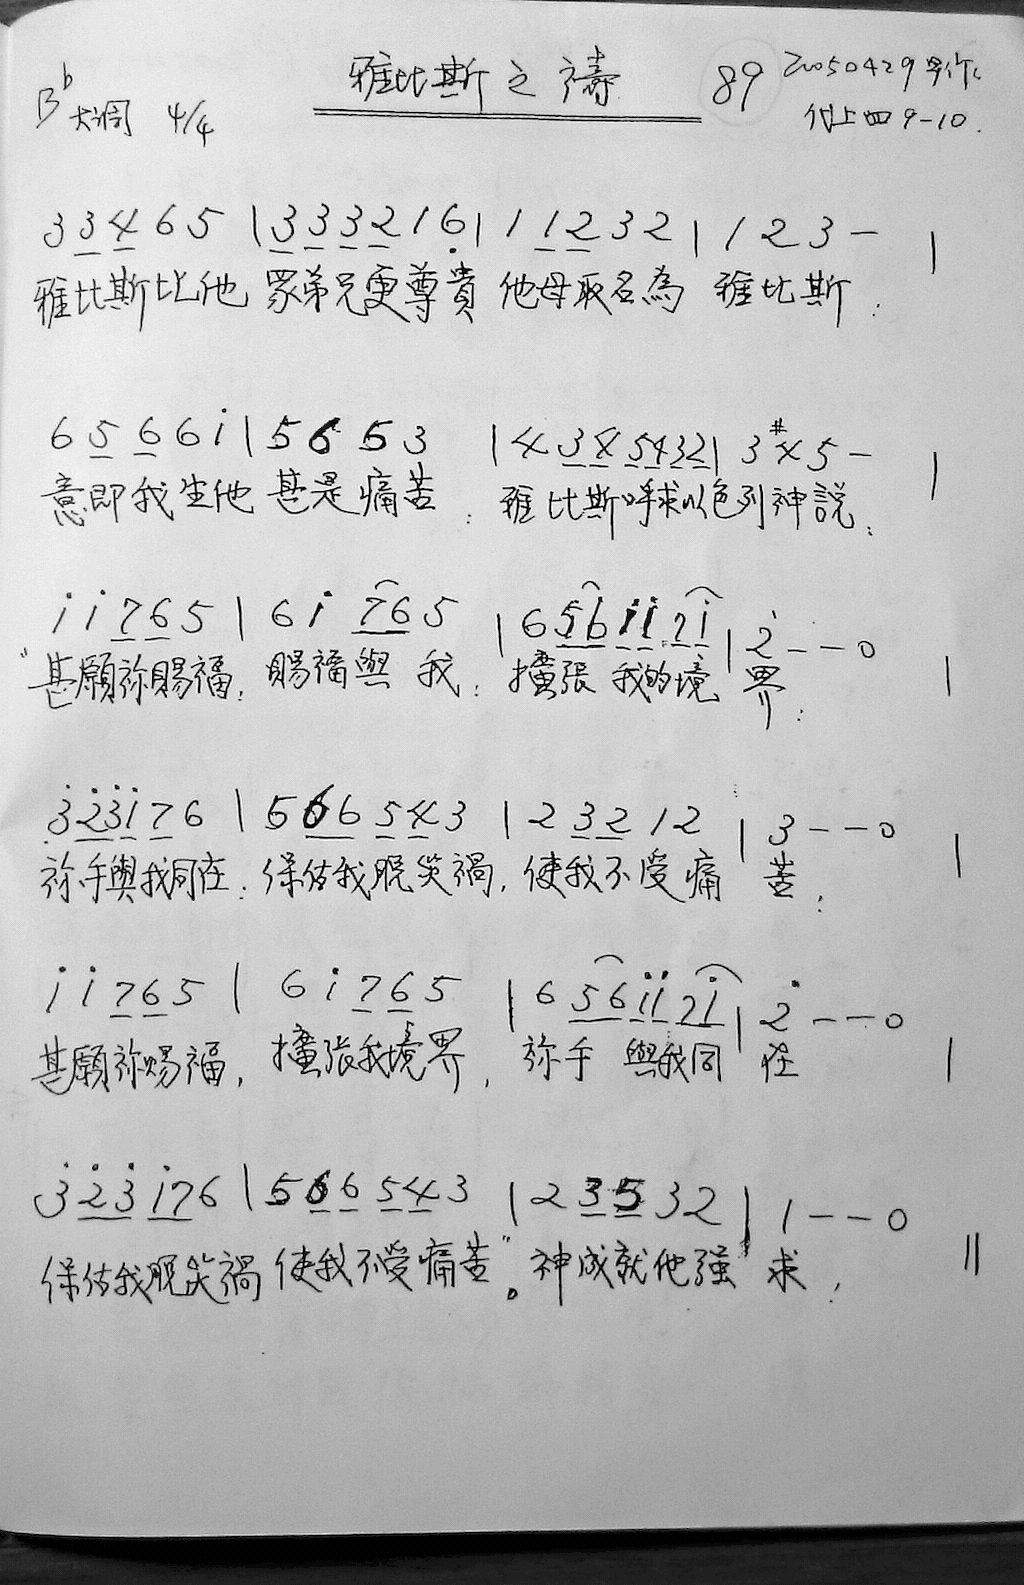 雅比斯之禱 89 20050429
B♭大调 4/4 代上四 9-10.
3 3 4 6 5 | 3 3 3 2 1 6̣ | 1 1 2 3 2 | 1 2 3 — |
雅比斯比他 眾弟兄更尊貴 他母取名為 雅比斯.
6 5 6 6 i | 5 6 5 3 | 4 3 4 5 4 3 2 | 3 #4 5 — |
意即我生他 甚是痛苦. 雅比斯呼求以色列神說:
i i 7 6 5 | 6 i 7 6 5 | 6 5 6 i i 7 i | 2̇ — — 0 |
"甚願祢賜福, 賜福與我, 擴張我的境界.
3̇ 2̇ 3̇ i 7 6 | 5 6 6 5 4 3 | 2 3 2 1 2 | 3 — — 0 |
祢手與我同在, 保佑我脫災禍, 使我不受痛苦.
i i 7 6 5 | 6 i 7 6 5 | 6 5 6 i i 7 i | 2̇ — — 0 |
甚願祢賜福, 擴張我境界, 祢手與我同在
3̇ 2̇ 3̇ i 7 6 | 5 6 6 5 4 3 | 2 3 5 3 2 | 1 — — 0 ‖
保佑我脫災禍 使我不受痛苦"。神成就他強求.